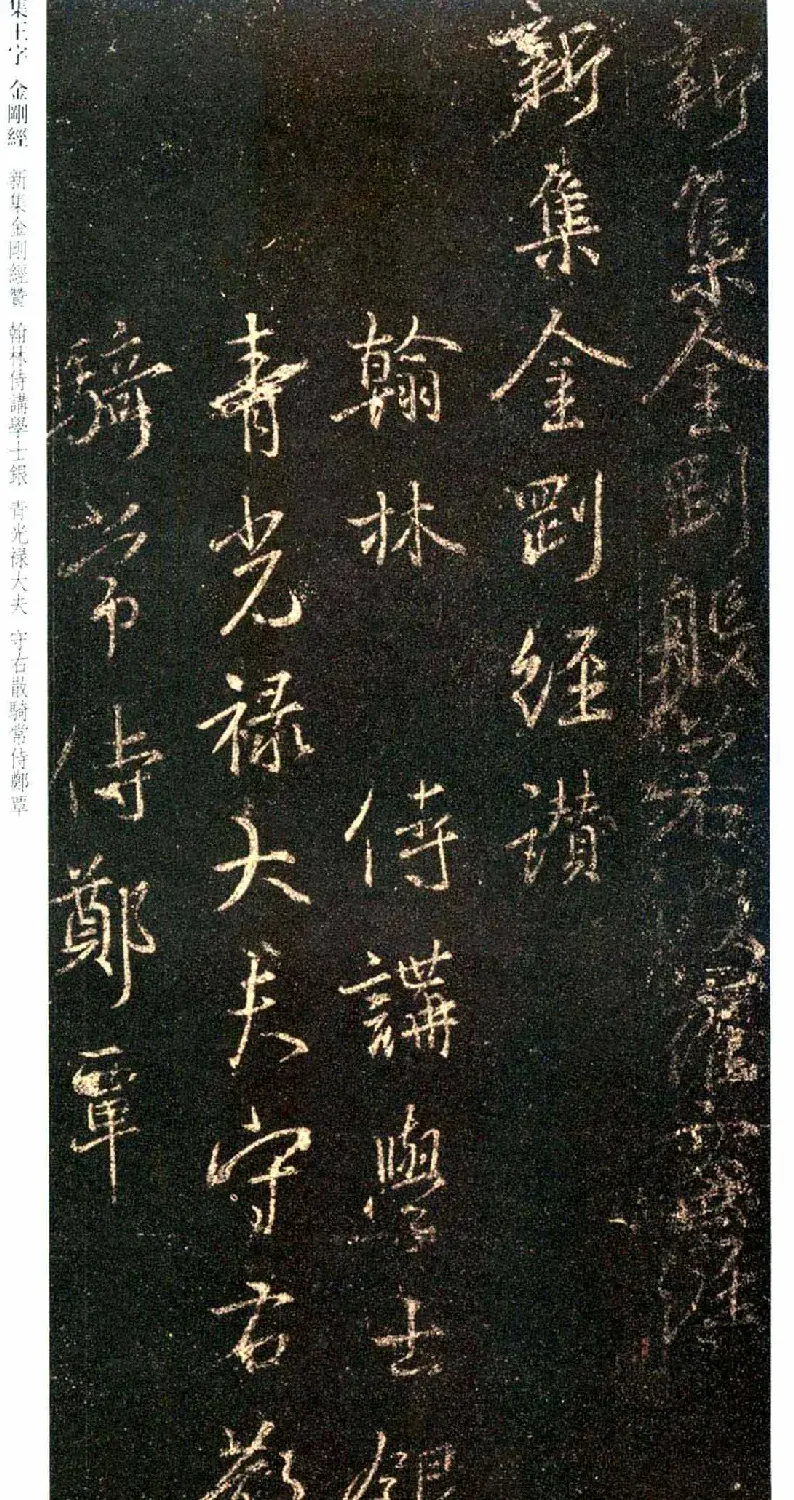 新集金剛般若波羅蜜經
新集金剛經讃
翰林侍講學士銀
青光禄大夫守右散
騎常侍鄭覃
集王字 金剛經 新集金剛經贊 翰林侍講學士銀 青光禄大夫 守右散騎常侍鄭覃